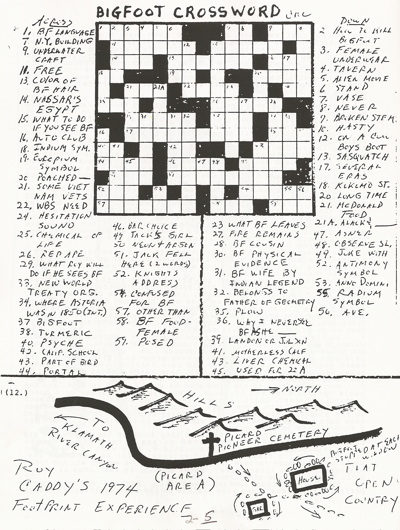 BIGFOOT CROSSWORD
Across
1. BF LANGUAGE
7. N.Y. BUILDING
9. UNDERWATER
CRAFT
11. FREE
13. COLOR OF
BF HAIR
14. NASSAR'S
EGYPT
15. WHAT TO DO
IF YOU SEE BF
16. AUTO CLUB
18. INDIUM SYM.
19. EUROPIUM
SYMBOL
20. POACHED—
21. SOME VIET
NAM VETS
22. WBS NEED
24. HESITATION
SOUND
25. CHEMICAL OF
LIFE
26. RED APE
29. WHAT BOY WILL
DO IF HE SEES BF
33. NEW WORLD
TREATY ORG.
34. WHERE ASTORIA
WAS IN 1850 (INIT)
37. BIGFOOT
38. TURMERIC
40. PSYCHE
42. CALIF. SCHOOL
43. PART OF BIRD
44. PORTAL
46. BAR CHOICE
51. JACK FELL
HERE (2 WORDS)
52. KNIGHTS
ADDRESS
54. CONFUSED
FOR BF
57. OTHER THAN
58. BF FOOD-
FEMALE
59. POSED
Down
2. HOW TO KILL
BIGFOOT
3. FEMALE
UNDERWEAR
4. TAVERN
5. ALIEN MOVIE
6. STAND
7. VASE
8. NEVER
9. BROKEN STEM
11. HASTY
12. ON A COW
BOYS BOOT
13. SASQUATCH
17. SEVERAL
ERAS
18. KLKLMO ST.
20. LONG TIME
21. MCDONALD
FOOD
23. WHAT BF LEAVES
27. FIRE REMAINS
28. BF COUSIN
30. BF PHYSICAL
EVIDENCE
31. BF WIFE BY
INDIAN LEGEND
32. BELONGS TO
FATHER OF GEOMETRY
35. PLOW
36. WHY I NEVER
39. LANDON OR
41. MOTHERLESS CALF
43. LIVER CHEMICAL
45. USED FOR 22A
47. ASNER
48. OBSERVE SL.
49. JOKE WITH
52. ANTIMONY
SYMBOL
53. ANNO DOMINI
55. RADIUM
SYMBOL
56. AVE.
(12.)
HILLS
→ NORTH
TO
KLAMATH
RIVER CANYON
PICARD
PIONEER CEMETERY
(PICARD
AREA)
HOUSE
FLAT
OPEN
COUNTRY
ROY
CADDY'S 1974
FOOTPRINT EXPERIENCE
2-5